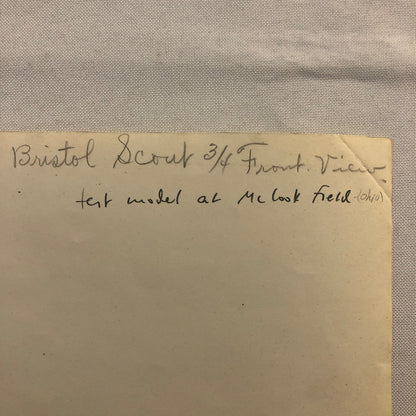 Bristol Scout 3/4 Front View.
test model at McCook field (Ohio)